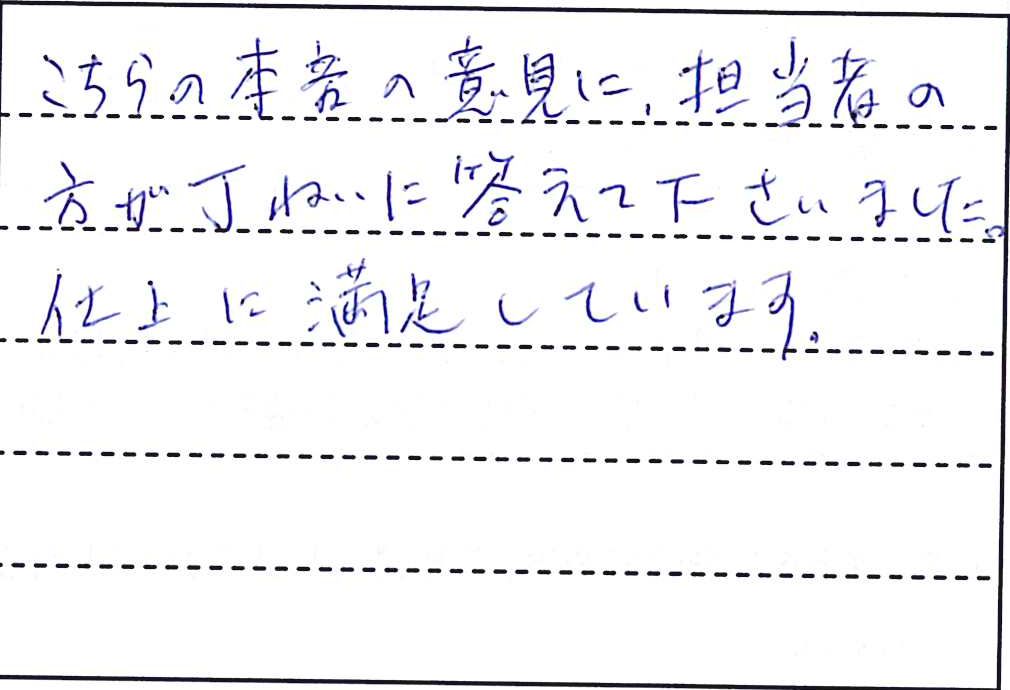 こちらの本音の意見に、担当者の
方が丁ねいに答えて下さいました。
仕上に満足しています。